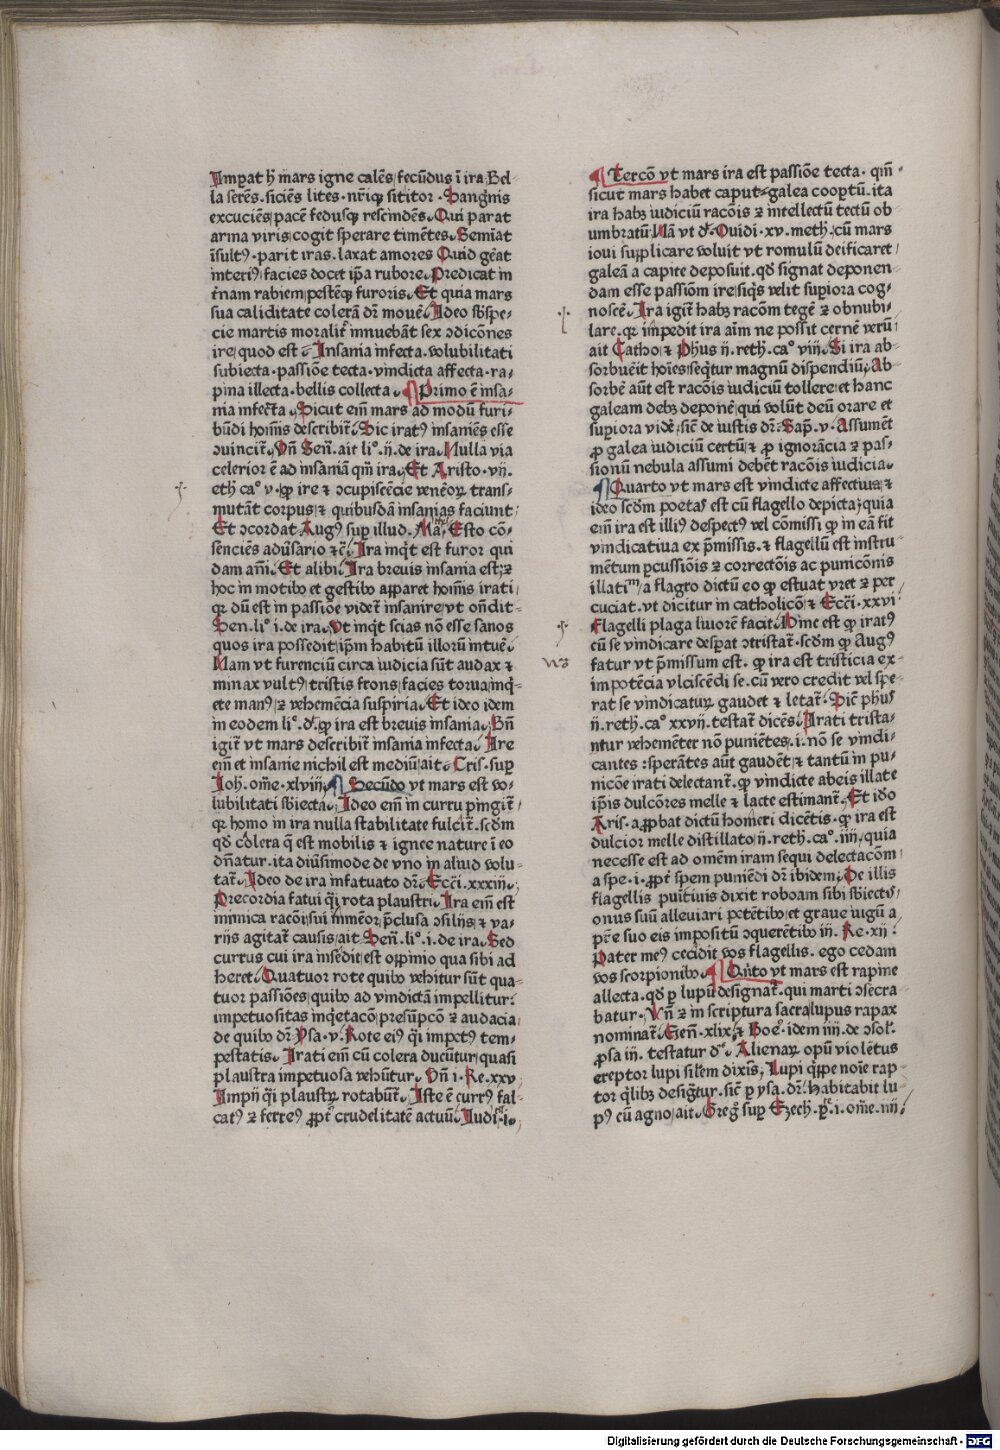 Impat h̄ mars igne calēs fecūdus ī ira Bel-
la serēs. siciēs lites. nr̄iqꝫ sititor. Sangīnis
excuciēs pacē fedusqꝫ rescīndēs. Qui parat
arma viris cogit sperare timētes. Semīat
īsultꝰ. parit iras. laxat amores Quid geāt
interiꝰ facies docet ip̄a rubore. Predicat in
tr̄nam rabiem pestēqꝫ furoris. Et quia mars
sua caliditate colerā dr̄ mouē. Ideo sb̄spe-
cie martis moralit̄ innuebāt sex ↄdicōnes
ire quod est. Insania infecta. volubilitati
subiecta. passiōe tecta. vindicta affecta. ra-
pina illecta. bellis collecta. Primo ē insa-
nia infecta. Sicut em̄ mars ad modū furi-
būdi hoīnis describit̄. Sic iratꝰ insaniēs esse
ↄuincit̄. Vn̄ Sen̄. ait li°. ij. de ira. Nulla via
celerior ē ad insaniā qm̄ ira. Et Aristo. vij.
eth̄ ca° v. ꝙ ire ⁊ ↄcupiscēcie veneoꝝ trans-
mutāt corpus ⁊ quibusdā insanias faciunt
Et ↄcordat Augꝰ sup illud. Mat̄h. Esto cō-
senciēs adūsario ⁊c̄. Ira inq̄t est furor qui
dam ani̅. Et alibi. Ira breuis insania est ⁊
hoc in motibꝰ et gestibꝰ apparet hoīnis irati
qꝛ dū est in passiōe videt̄ insanire vt on̄dit-
Sen. li° i. de ira. Vt inq̄t scias nō esse sanos
quos ira possedit ip̄m habitū illorū intuē
Nam vt furenciū circa iudicia sūt audax ⁊
minax vultꝰ tristis frons facies torua inq̄-
ete manꝰ ⁊ vehemēcia suspiria. Et ideo idem
in eodem li°. dꝯ ꝙ ira est breuis insania. Bn̄
igit̄ vt mars describit̄ insania infecta. Ire
em̄ et insanie nichil est mediū ait. Cris. sup
Ioh̄. om̄e. xlviij. Secūdo vt mars est vo-
lubilitati sb̄iecta. Ideo em̄ in curru pingit̄
qꝛ homo in ira nulla stabilitate fulcit̄. scd̄m
qd̄ colera q̄ est mobilis ⁊ ignee nature ī eo
dn̄atur. ita diūsimode de vno in aliud volu-
tat̄. Ideo de ira infatuato dr̄. Ecc̄i. xxxiij.
Precordia fatui q̄i rota plaustri. Ira em̄ est
inimica racōi sui inmēor p̄clusa ↄsilijs ⁊ va-
rijs agitat̄ causis ait Sen̄. li°. i. de ira. Sed
currus cui ira insedit est opp̄inio qua sibi ad
heret. Quatuor rote quibꝰ vehitur sūt qua-
tuor passiōes quibꝰ ad vindictā impellitur:
impetuositas inq̄etacō presūpcō ⁊ audacia
de quibꝰ dr̄. Psa. v. Rote eiꝰ q̄i impetꝰ tem-
pestatis. Irati em̄ cū colera ducūtur quasi
plaustra impetuosa vehūtur. Vn̄ i. Re. xxv
Impij q̄i plaustꝝ rotabūt̄. Iste ē currꝰ fal-
catꝰ ⁊ ferreꝰ ꝓpt̄ crudelitatē actuū. Iudi°. i.
Tercō vt mars ira est passiōe tecta. qm̄
sicut mars habet caput galea cooptū. ita
ira habꝫ iudiciū racōis ⁊ intellectū tectū ob
umbratū Nā vt dꝯ. Ouidi. xv. meth̄. cū mars
ioui supplicare voluit vt romulū deificaret
galeā a capite deposuit. qd̄ signat deponen
dam esse passiōm ire siq̄s velit supiora cog-
noscē. Ira igit̄ habꝫ racōm tegē ⁊ obnubi-
lare. qꝛ impedit ira aīm ne possit cernē verū
ait Catho ⁊ Phus ij. reth̄. ca° viij. Si ira ab-
sorbuēit hoīes seq̄tur magnū dispendiū. Ab-
sorbē aūt est racōis iudiciū tollere et hanc
galeam debꝫ deponē qui volūt deū orare et
supiora vidē. sic̄ de iustis dr̄. Sap̄. v. Assumēt
ꝓ galea iudiciū certū ⁊ ꝓ ignorācia ⁊ pas-
sionū nebula assumi debēt racōis iudicia
Quarto vt mars est vindicte affectiua ⁊
ideo scd̄m poetas est cū flagello depicta quia
em̄ ira est illiꝰ despectꝰ vel cōmissi ꝙ in eā fit
vindicatiua ex p̄missis. ⁊ flagellū est instru-
mētum pcussiōis ⁊ correctōis ac punicōnis
illati a flagro dictū eo ꝙ estuat vret ⁊ per
cuciat. vt dicitur in catholicō ⁊ Ecc̄i. xxvi
Flagelli plaga liuorē facit. Hinc est ꝙ iratꝰ
cū se vindicare desperat ↄtristat̄. scd̄m ꝙ Augꝰ
fatur vt p̄missum est. ꝙ ira est tristicia ex-
impotēcia vlciscēdi se. cū vero credit vel spe-
rat se vindicatur gaudet ⁊ letat̄. Sic̄ phus
ij. reth̄. ca° xxvij. testat̄ dicēs. Irati trista-
ntur vehemēter nō puniētes. i. nō se vindi-
cantes: sperātes aūt gaudēt ⁊ tantū in pu-
nicōe irati delectant̄. ꝙ vindicte abeis illate
ip̄is dulcōres melle ⁊ lacte estimant̄. Et id̄o
Aris. approbat dictū homeri dicētis. ꝙ ira est
dulcior melle distillato ij. reth̄. ca°. iiij. quia
necesse est ad omēm iram sequi delectacōm
a spe. i. ꝓpt̄ spem puniēdi dr̄ ibidem. De illis
flagellis puītiuis dixit roboam sibi sb̄iectꝭ
onus suū alleuiari petētibꝰ et graue iugū a
pr̄e suo eis impositū ↄquerētibꝰ iij. Re. xij
Pater meꝰ cecidit vos flagellis. ego cedam
vos scorpionibꝰ. Qn̄to vt mars est rapine
allecta. qd̄ p lupū designat̄. qui marti ↄsecra
batur. Vn̄ ⁊ in scriptura sacra lupus rapax
nominat̄. Gen̄. xlix. ⁊ Boe°. idem iiij. de ↄsol̄.
ꝓsa iij. testatur dꝯ. Alienaꝝ opū violētus
ereptor lupi silem dixis. Lupi qīppe noīe rap-
tor q̄libꝫ designtur. sic̄ p ysa. dr̄. Habitabit lu-
pꝰ cū agno ait. Gregꝰ sup Ezech̄. p̄. i. om̄e. iiij.
Digitalisierung gefördert durch die Deutsche Forschungsgemeinschaft - DFG